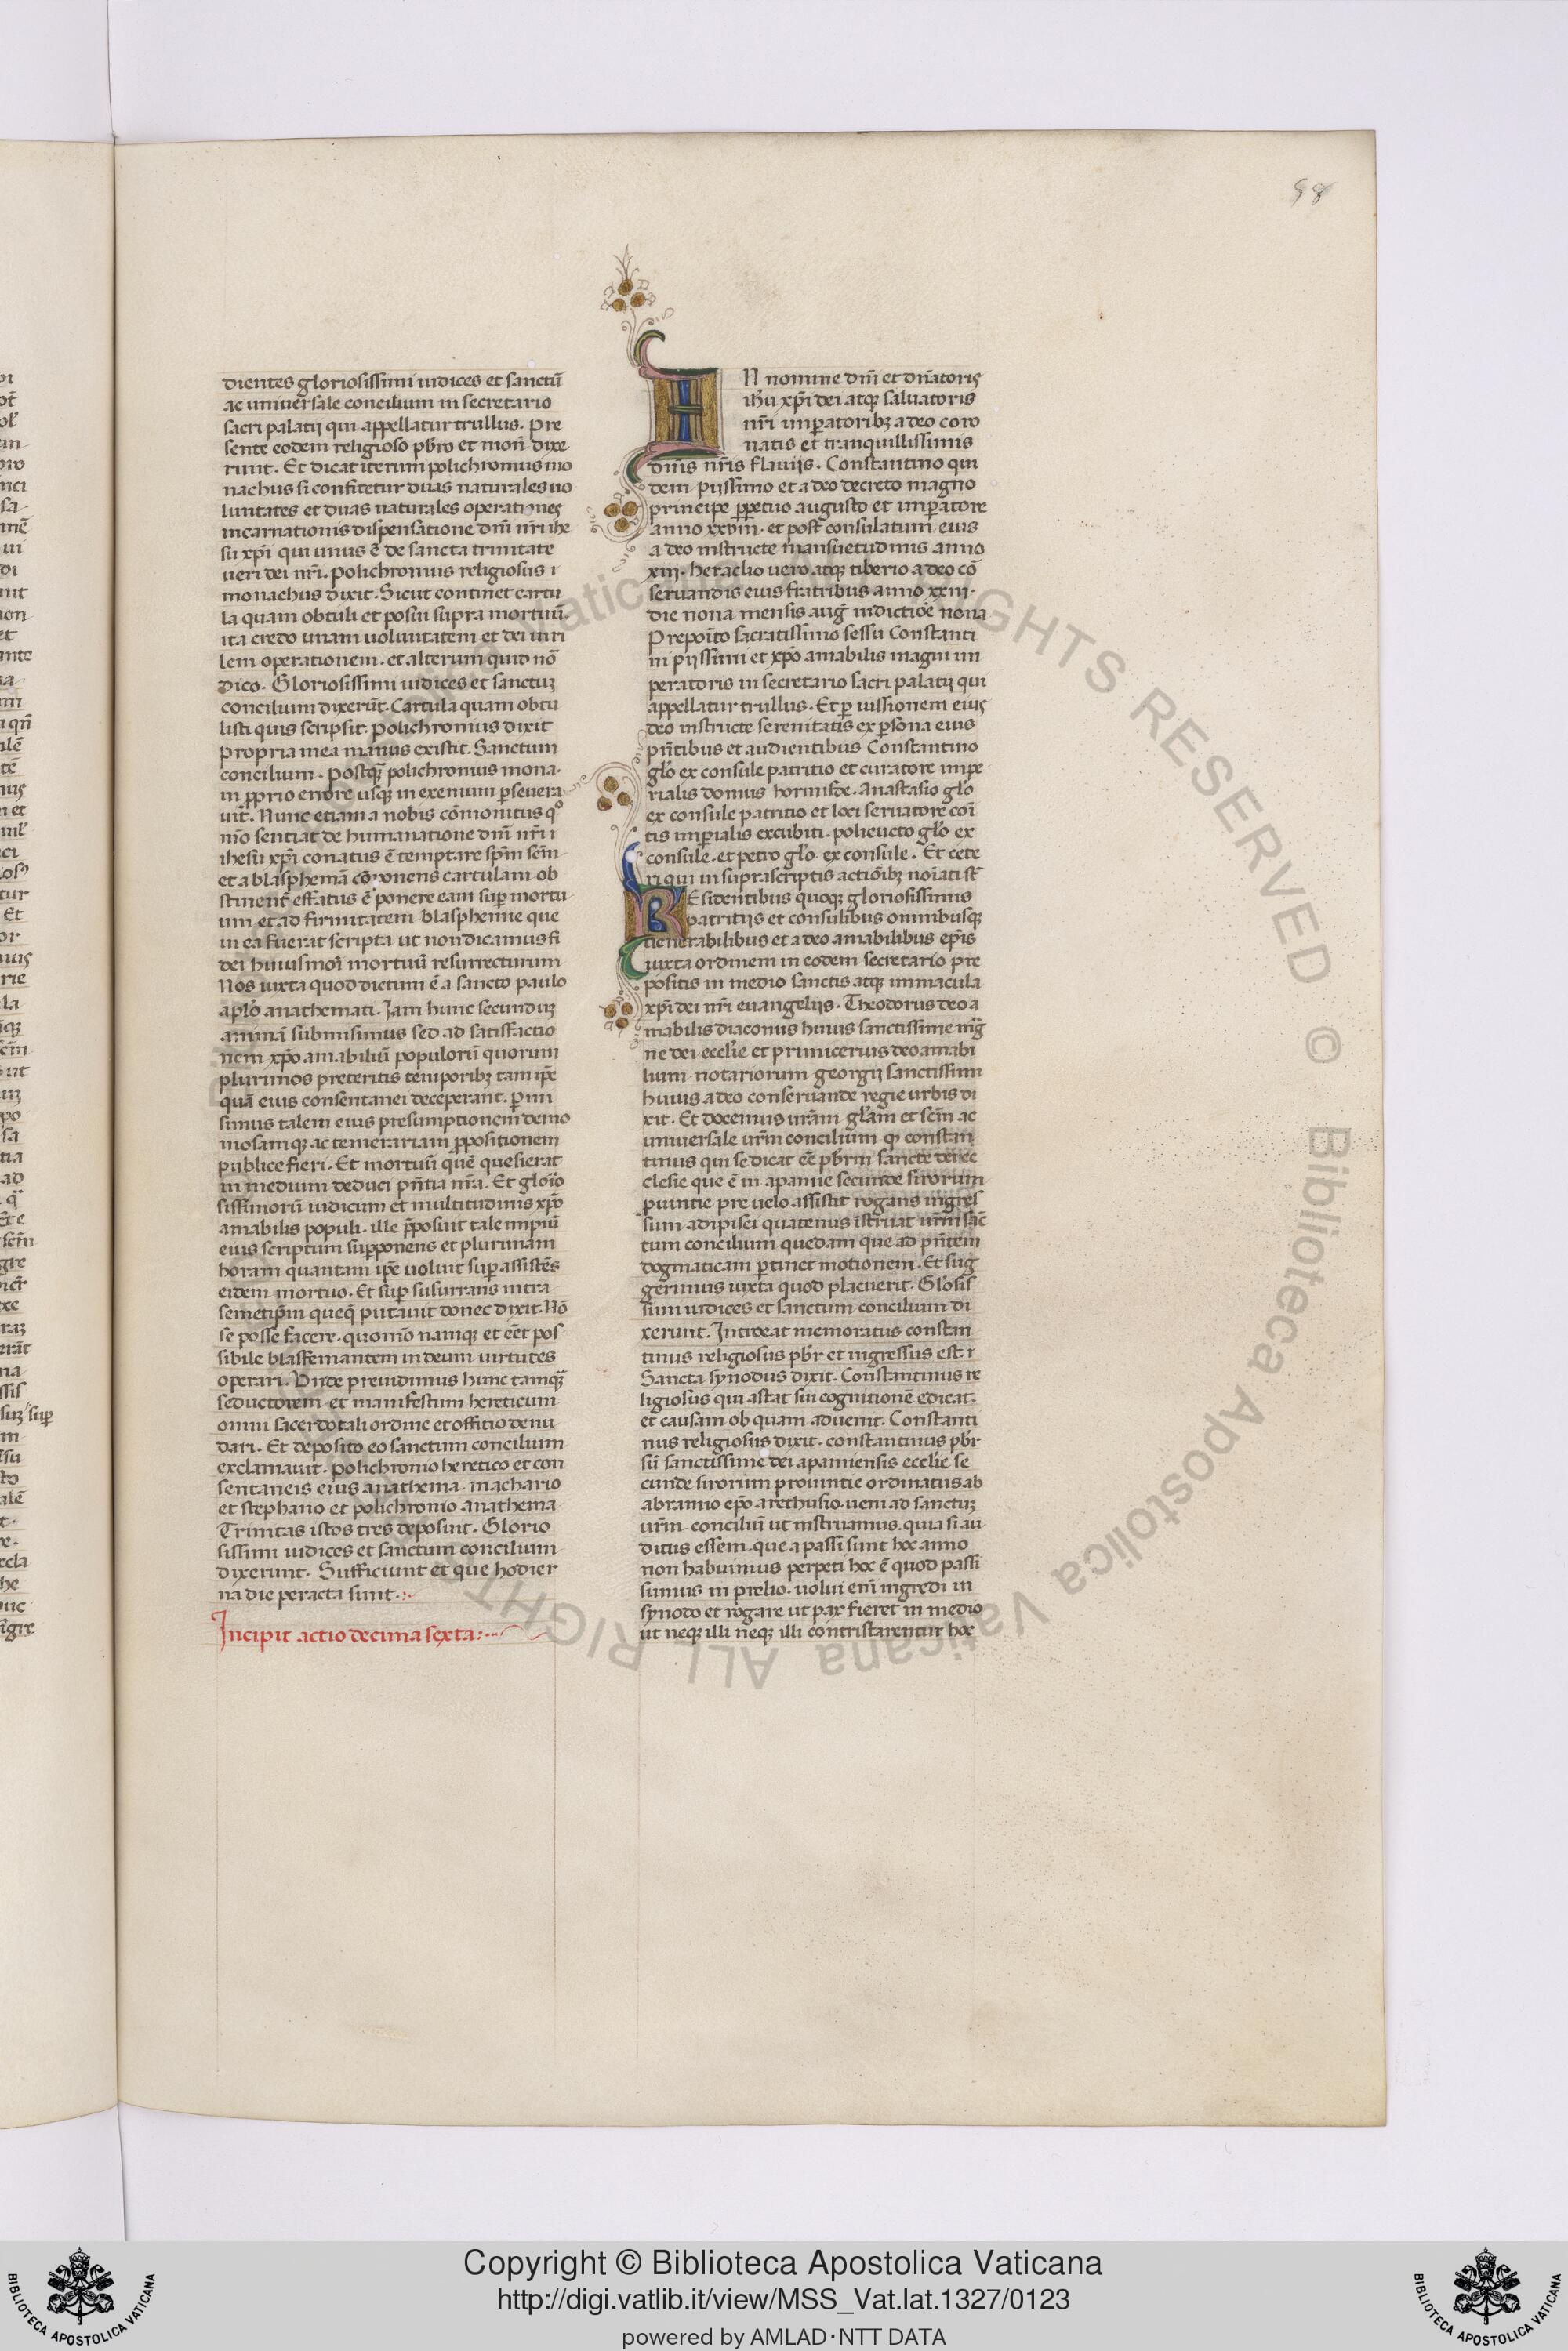 58
dientes gloriosissimi iudices et sanctū
ac uniuersale concilium in secretario
sacri palatij qui appellatur trullus. Pre
sente eodem religioso pb̄ro et mon̄ dixe
runt. Et dicat iterum polichromus mo
nachus si confitetur duas naturales uo
luntates et duas naturales operationes
incarnationis dispensatione dn̄i nr̄i ihe
su xp̄i qui unus ē de sancta trinitate
ueri dei nr̄i. Polichromus religiosus i
monachus dixit. Sicut continet cartu
la quam obtuli et posui supra mortuū.
ita credo unam uoluntatem et dei uiri
lem operationem. et alterum quid nō
dico. Gloriosissimi iudices et sanctuꝫ
concilium dixerūt. Cartula quam obtu
listi quis scripsit. Polichromus dixit
propria mea manus existit. Sanctum
concilium. Postqꝫ polichromus mona.
in ꝓprio errore usqꝫ in exemum ꝑseuera
uit. Nunc etiam a nobis cōmonitus qͦ
mō sentiat de humanatione dn̄i nr̄i i
ihesu xp̄i conatus ē temptare sp̄m scm̄
et a blasphemā componens cartulam ob
stinent̄ effatus ē ponere eam suꝑ mortu
um et ad firmitatem blasphemie que
in ea fuerat scripta ut non dicamus fi
dei huiusmōi mortuū resurrecturum
Nos iuxta quod dictum ē a sancto paulo
apl̄o anathemati. Iam hunc secunduꝫ
animā submisimus sed ad satisfactio
nem xp̄o amabiliū populorū quorum
plurimos preteritis temporibꝫ tam ip̄e
quā eius consentanei deceperant. ꝑmi
simus talem eius presumptionem demo
niosamqꝫ ac temerariam ꝓpositionem
publice fieri. Et mortuū quē quesierat
in medium deduci pn̄tia nr̄a. Et glorio
sissimorū iudicum et multitudinis xp̄o
amabilis populi. ille p̄posuit tale impiū
eius scriptum supponens et plurimam
horam quantam ip̄e uoluit suꝑ assistēs
eidem mortuo. Et suꝑ susurrans intra
semetip̄m queqꝫ putauit donec dixit. Nō
se posse facere. quomō namqꝫ et eēt pos
sibile blasfemantem in deum uirtutes
operari. Unde preuidimus hunc tamqꝫ
seductorem et manifestum hereticum
omni sacerdotali ordine et offitio denu
dari. Et deposito eo sanctum concilium
exclamauit. Polichronio heretico et con
sentaneis eius anathema. machario
et stephano et polichronio anathema
Trinitas istos tres deposuit. Glorio
sissimi iudices et sanctum concilium
dixerunt. Sufficiunt et que hodier
na die peracta sunt.
Incipit actio decima sexta:
IN nomine dn̄i et dn̄atoris
ihū xp̄i dei atqꝫ saluatoris
nr̄i imꝑatoribꝫ a deo coro
natis et tranquillissimis
dn̄is nr̄is flauijs. Constantino qui
dem pijssimo et a deo decreto magno
principe ꝑpetuo augusto et imꝑatore
anno xxviii. et post consulatum eius
a deo instructe mansuetudinis anno
xiij. heraclio uero atqꝫ tiberio a deo cō
seruandis eius fratribus anno xxiii.
die nona mensis auḡ indictiōe nona
Prepoīto sacratissimo sessu Constanti
ni pijssimi et xp̄o amabilis magni im
peratoris in secretario sacri palatij qui
appellatur trullus. Et ꝑ iussionem eius
deo instructe serenitatis ex ꝑsona eius
pn̄tibus et audientibus Constantino
glo ex consule patritio et curatore impe
rialis domus hormisde. Anastasio glo
ex consule patritio et loci seruatore comi
tis imꝑialis excubiti. polieucto glo ex
consule. et petro glo ex consule. Et cete
ri qui in suprascriptis actiōibꝫ noīati st̄
Residentibus quoqꝫ gloriosissimis
patritijs et consulibus omnibusqꝫ
uenerabilibus et a deo amabilibus ep̄is
iuxta ordinem in eodem secretario pre
positis in medio sanctis atqꝫ immacula
xp̄i dei nr̄i euangelijs. Theodorus deo a
mabilis diaconus huius sanctissime mḡ
ne dei eccl̄ie et primicerius deo amabi
lium notariorum georgij sanctissimi
huius a deo conseruande regie urbis di
xit. Et docemus urām gl̄am et scm̄ ac
uniuersale ur̄m concilium qꝫ constan
tinus qui se dicat eē pb̄rm sancte dei ec
clesie que ē in apamie secunde sirorum
puintie pre uelo assistit rogans ingres
sum adipisci quatenus īstruat ur̄m sāc
tum concilium quedam que ad pn̄tem
dogmaticam ꝑtinet motionem. Et sug
gerimus iuxta quod placuerit. Glosis
simi iudices et sanctum concilium di
xerunt. Introeat memoratus constan
tinus religiosus pb̄r et ingressus est. i
Sancta synodus dixit. Constantinus re
ligiosus qui astat sui cognitionē edicat.
et causam ob quam aduenit. Constanti
nus religiosus dixit. constantinus pb̄r
sū sanctissime dei apamiensis eccl̄ie se
cunde sirorum prouintie ordinatus ab
abramio ep̄o arethusio. ueni ad sanctuꝫ
ur̄m conciliū ut instruamus. quia si au
ditus essem. que a passi sumt hoc anno
non habuimus perpeti hoc ē quod passi
sumus in prelio. uolui enī ingredi in
synodo et rogare ut pax fieret in medio
ut neqꝫ illi neqꝫ illi contristarentur hoc
Copyright © Biblioteca Apostolica Vaticana
http://digi.vatlib.it/view/MSS_Vat.lat.1327/0123
powered by AMLAD·NTT DATA
BIBLIOTECA APOSTOLICA VATICANA
BIBLIOTECA APOSTOLICA VATICANA